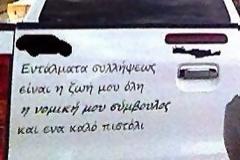 Εντάλματα συλλήψεως
είναι η ζωή μου όλη
η νομική μου σύμβουλος
και ενα καλό πιστόλι